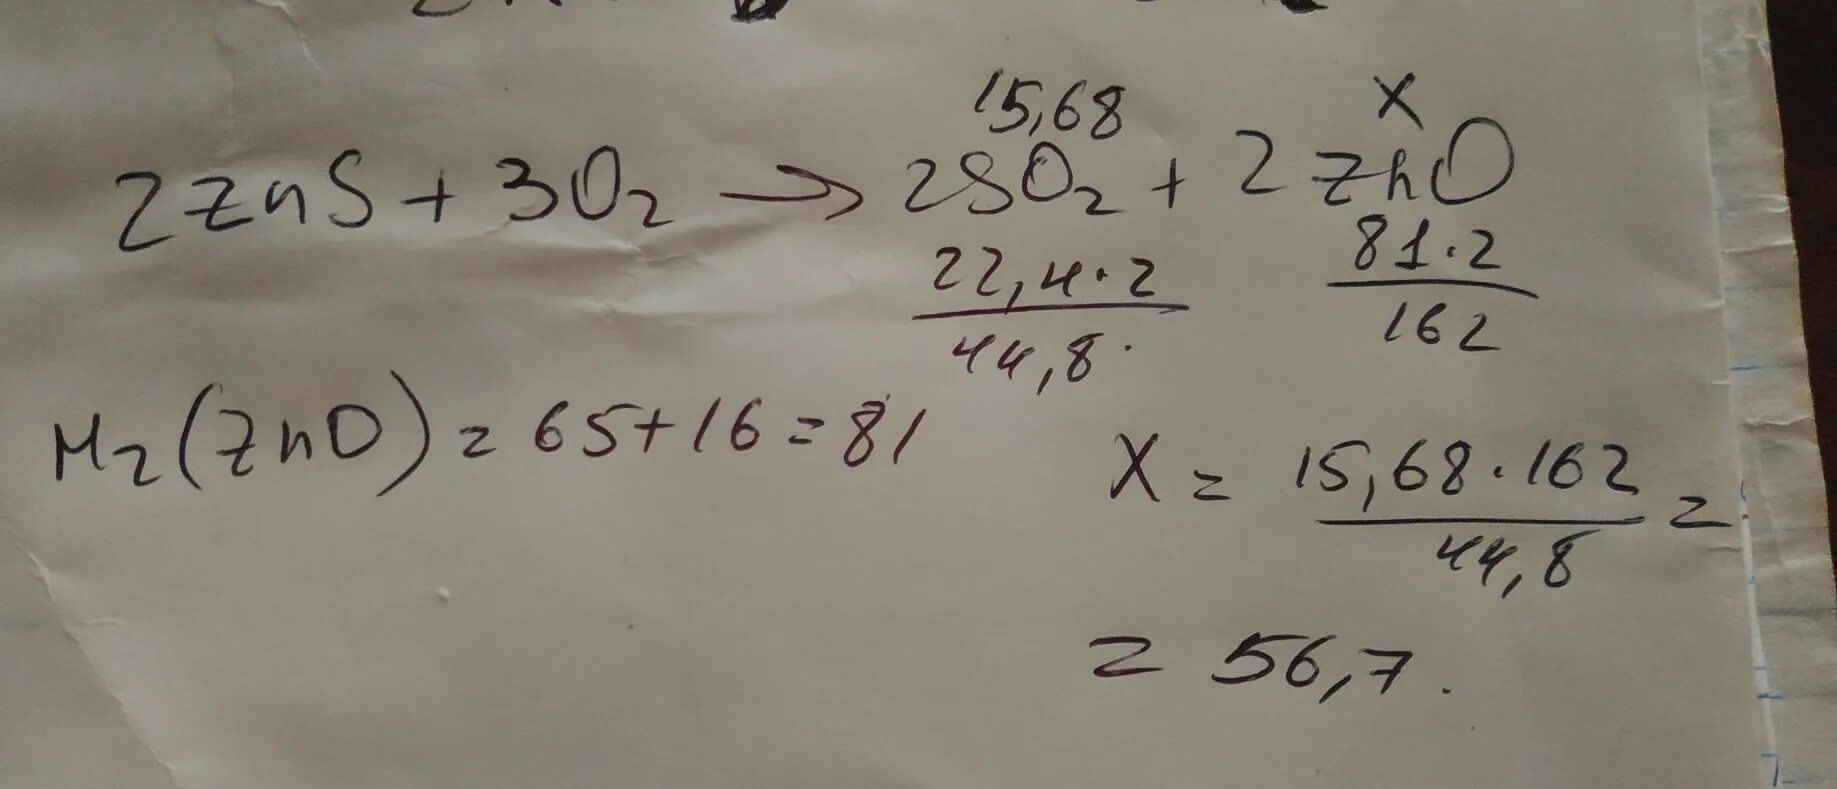 15,68 X
2ZnS + 3O₂ → 2SO₂ + 2ZnO
22,4·2 81·2
44,8· 162
Mz(ZnO) = 65+16=81
X = 15,68·162 =
44,8
= 56,7.